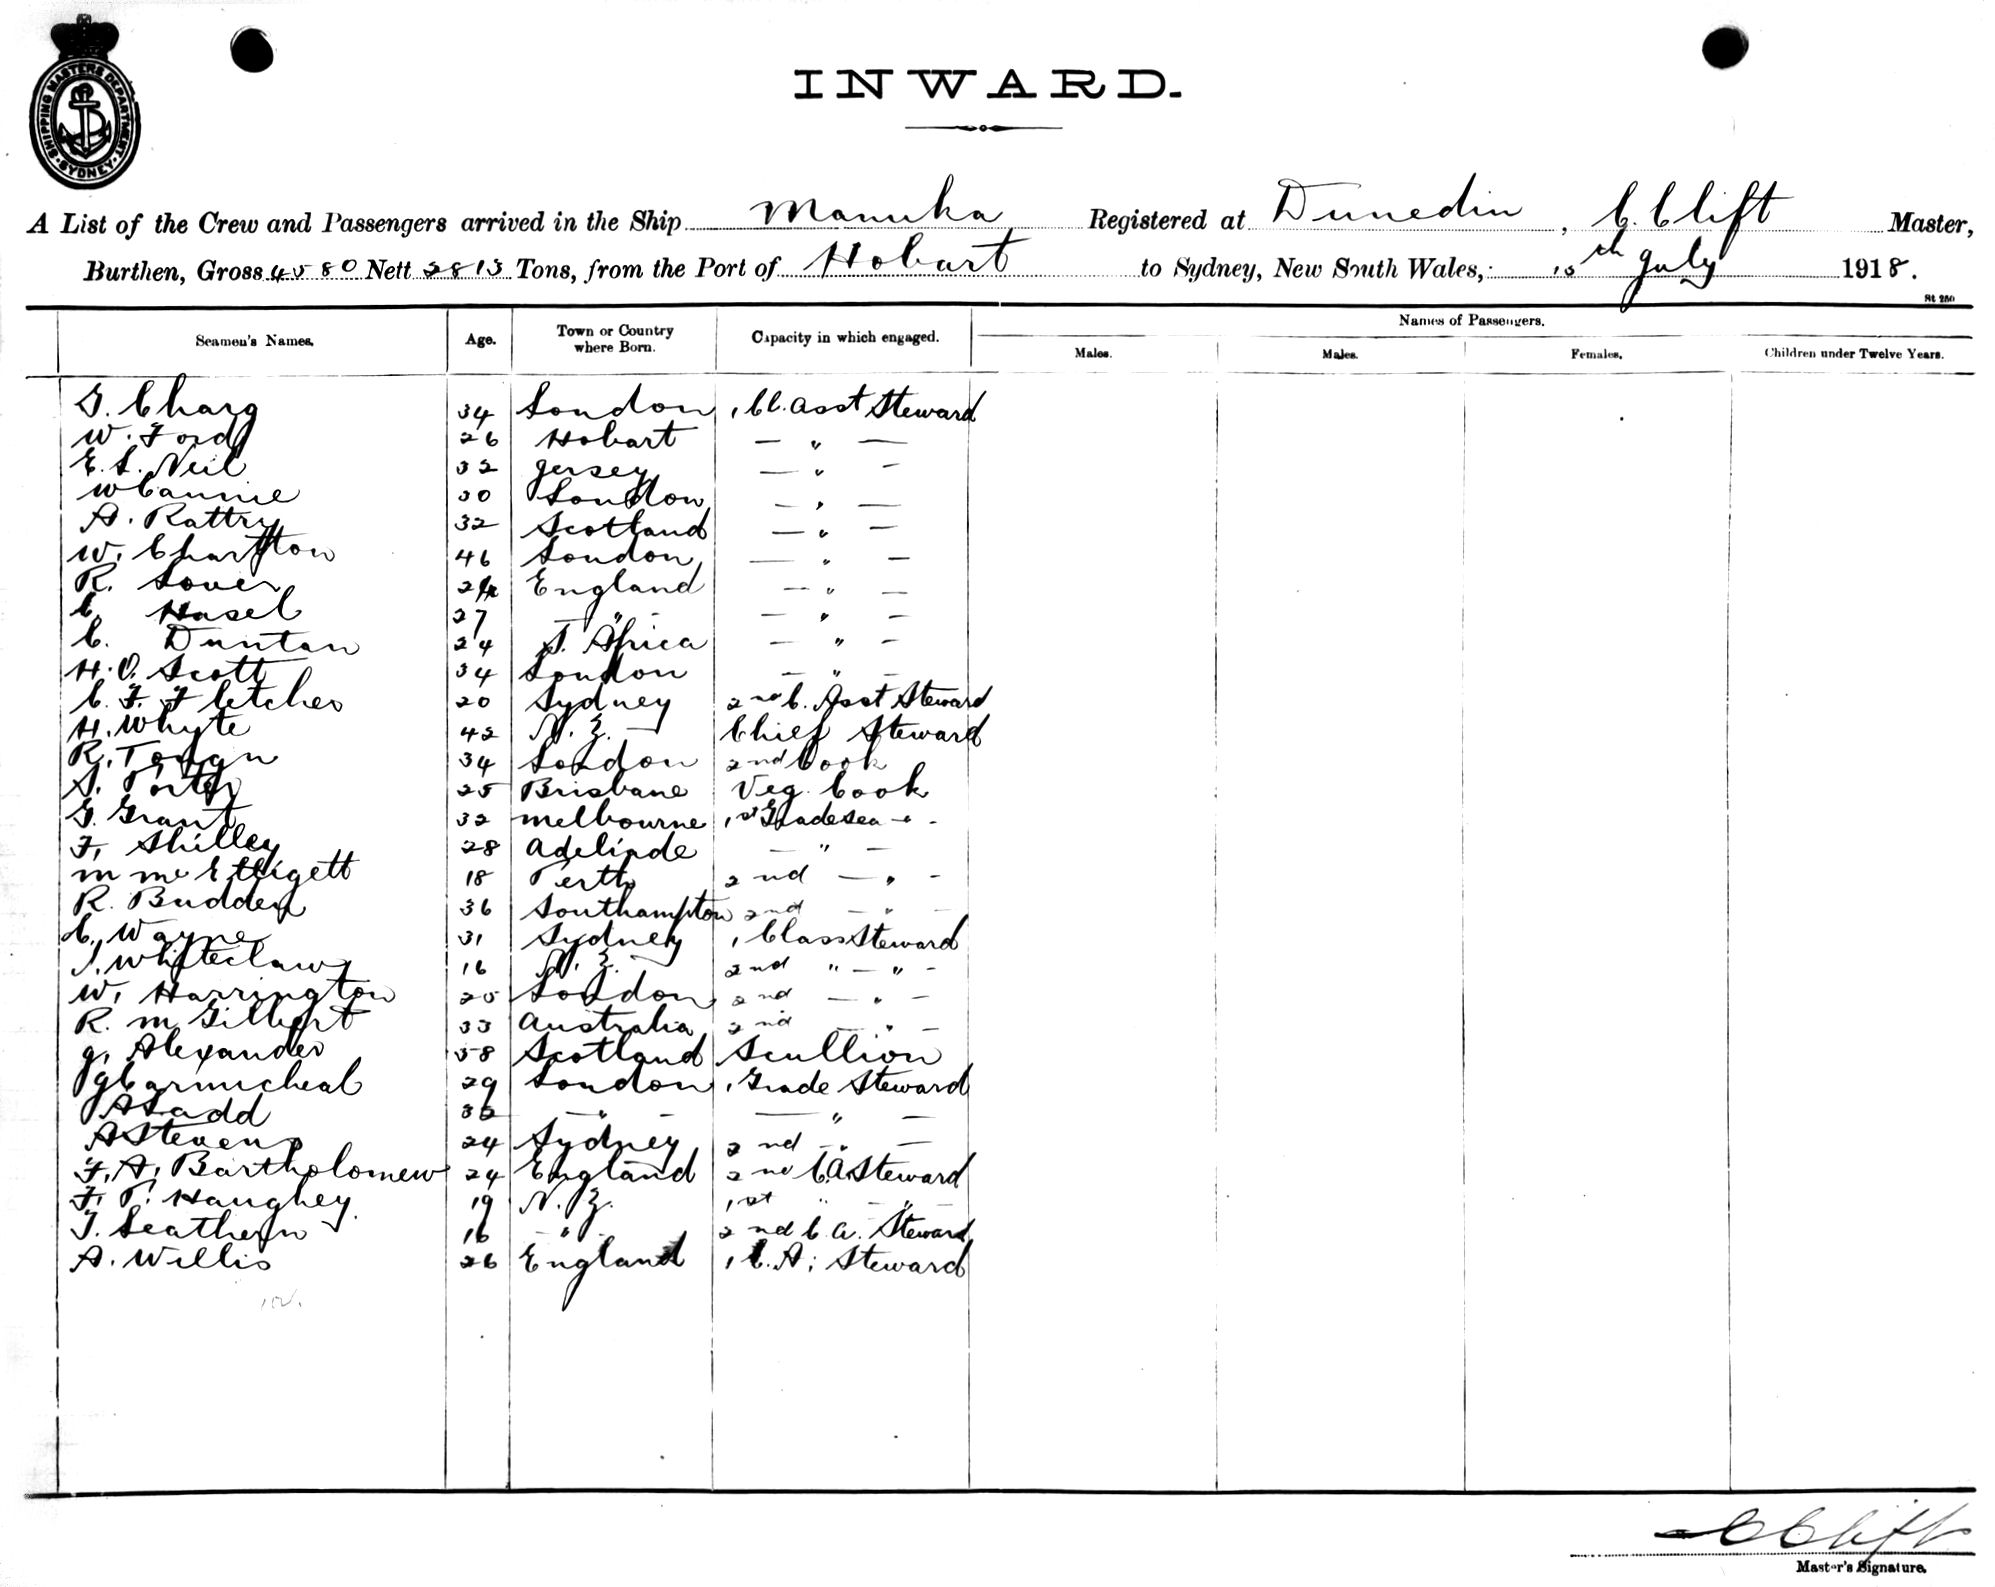 SHIPPING MASTERS DEPARTMENT · SYDNEY ·
INWARD.
A List of the Crew and Passengers arrived in the Ship Manuka Registered at Dunedin, C. Clift Master,
Burthen, Gross 4580 Nett 2813 Tons, from the Port of Hobart to Sydney, New South Wales, 15th July 1918.
St 250
Names of Passengers.
Seamen's Names. Age. Town or Country where Born. Capacity in which engaged. Males. Males. Females. Children under Twelve Years.
G. Charg 34 London 1 Cl. Asst Steward
W. Ford 26 Hobart — " —
E. L. Neil 32 Jersey — " —
W Cannie 30 London — " —
A. Rattry 32 Scotland — " —
W. Charlton 46 London — " —
R. Lover 24 England — " —
C. Hasel 27 — " — — " —
C. Duntan 24 S. Africa — " —
H. O. Scott 34 London — " —
C. F. Fletcher 20 Sydney 2nd C. Asst Steward
H. Whyte 42 N. Z. — Chief Steward
R. 34 London 2nd Cook
S. Porter 25 Brisbane Veg. Cook
G. Grant 32 Melbourne 1st Grade sea — " -
F. Shilley 28 Adeliade — " —
M Mc Elligett 18 Perth 2nd — " -
R. Budden 36 Southampton 2nd — " —
C. Wayne 31 Sydney 1 Class Steward
J. Whiteclaw 16 N. Z. — 2nd " — " -
W. Harrington 25 London 2nd — " -
R. M Gilbert 33 Australia 2nd — " -
J. Alexander 58 Scotland Scullion
J Carmicheal 29 London 1 Grade Steward
A Ladd 32 — " — — " —
A Stevens 24 Sydney 2nd - " —
F. A. Bartholomew 24 England 2nd C. A Steward
F. P. Haughey. 19 N. Z. 1st " - " -
T. Leathern 16 - " - 2nd C. A. Steward
A. Willis 26 England 1 C. A; Steward
C Clift
Master's Signature.